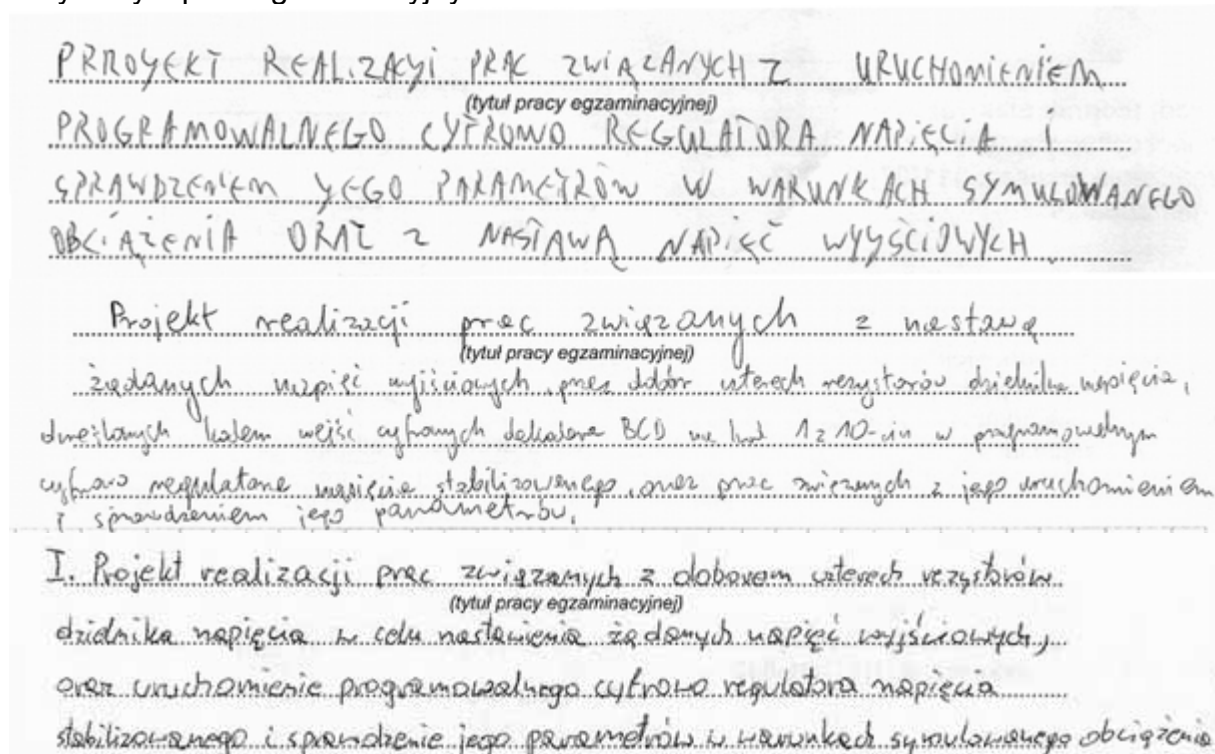 PRROYEKT REALIZACYI PRAC ZWIĄZANYCH Z URUCHOMIENIEM
(tytuł pracy egzaminacyjnej)
PROGRAMOWALNEGO CYFROWO REGULATORA NAPIĘCIA
SPRAWDZENIEM YEGO PARAMETRÓW W WARUNKACH SYMULOWANEGO
OBCIĄŻENIA ORAZ Z NASTAWĄ NAPIĘĆ WYYŚCIOWYCH
Projekt realizacji prac związanych z nastawą
(tytuł pracy egzaminacyjnej)
żądanych napięć wyjściowych, przez dobór czterech rezystorów dzielnika napięcia,
określanych kodem wejść cyfrowych dekodera BCD na kod 1 z 10-ciu w programowalnym
cyfrowo regulatorze napięcia stabilizowanego, oraz prac związanych z jego uruchomieniem
i sprawdzeniem jego parametrów.
I. Projekt realizacji prac związanych z doborem czterech rezystorów
(tytuł pracy egzaminacyjnej)
dzielnika napięcia w celu nastawienia żądanych napięć wyjściowych,
oraz uruchomienie programowalnego cyfrowo regulatora napięcia
stabilizowanego i sprawdzenie jego parametrów w warunkach symulowanego obciążenia